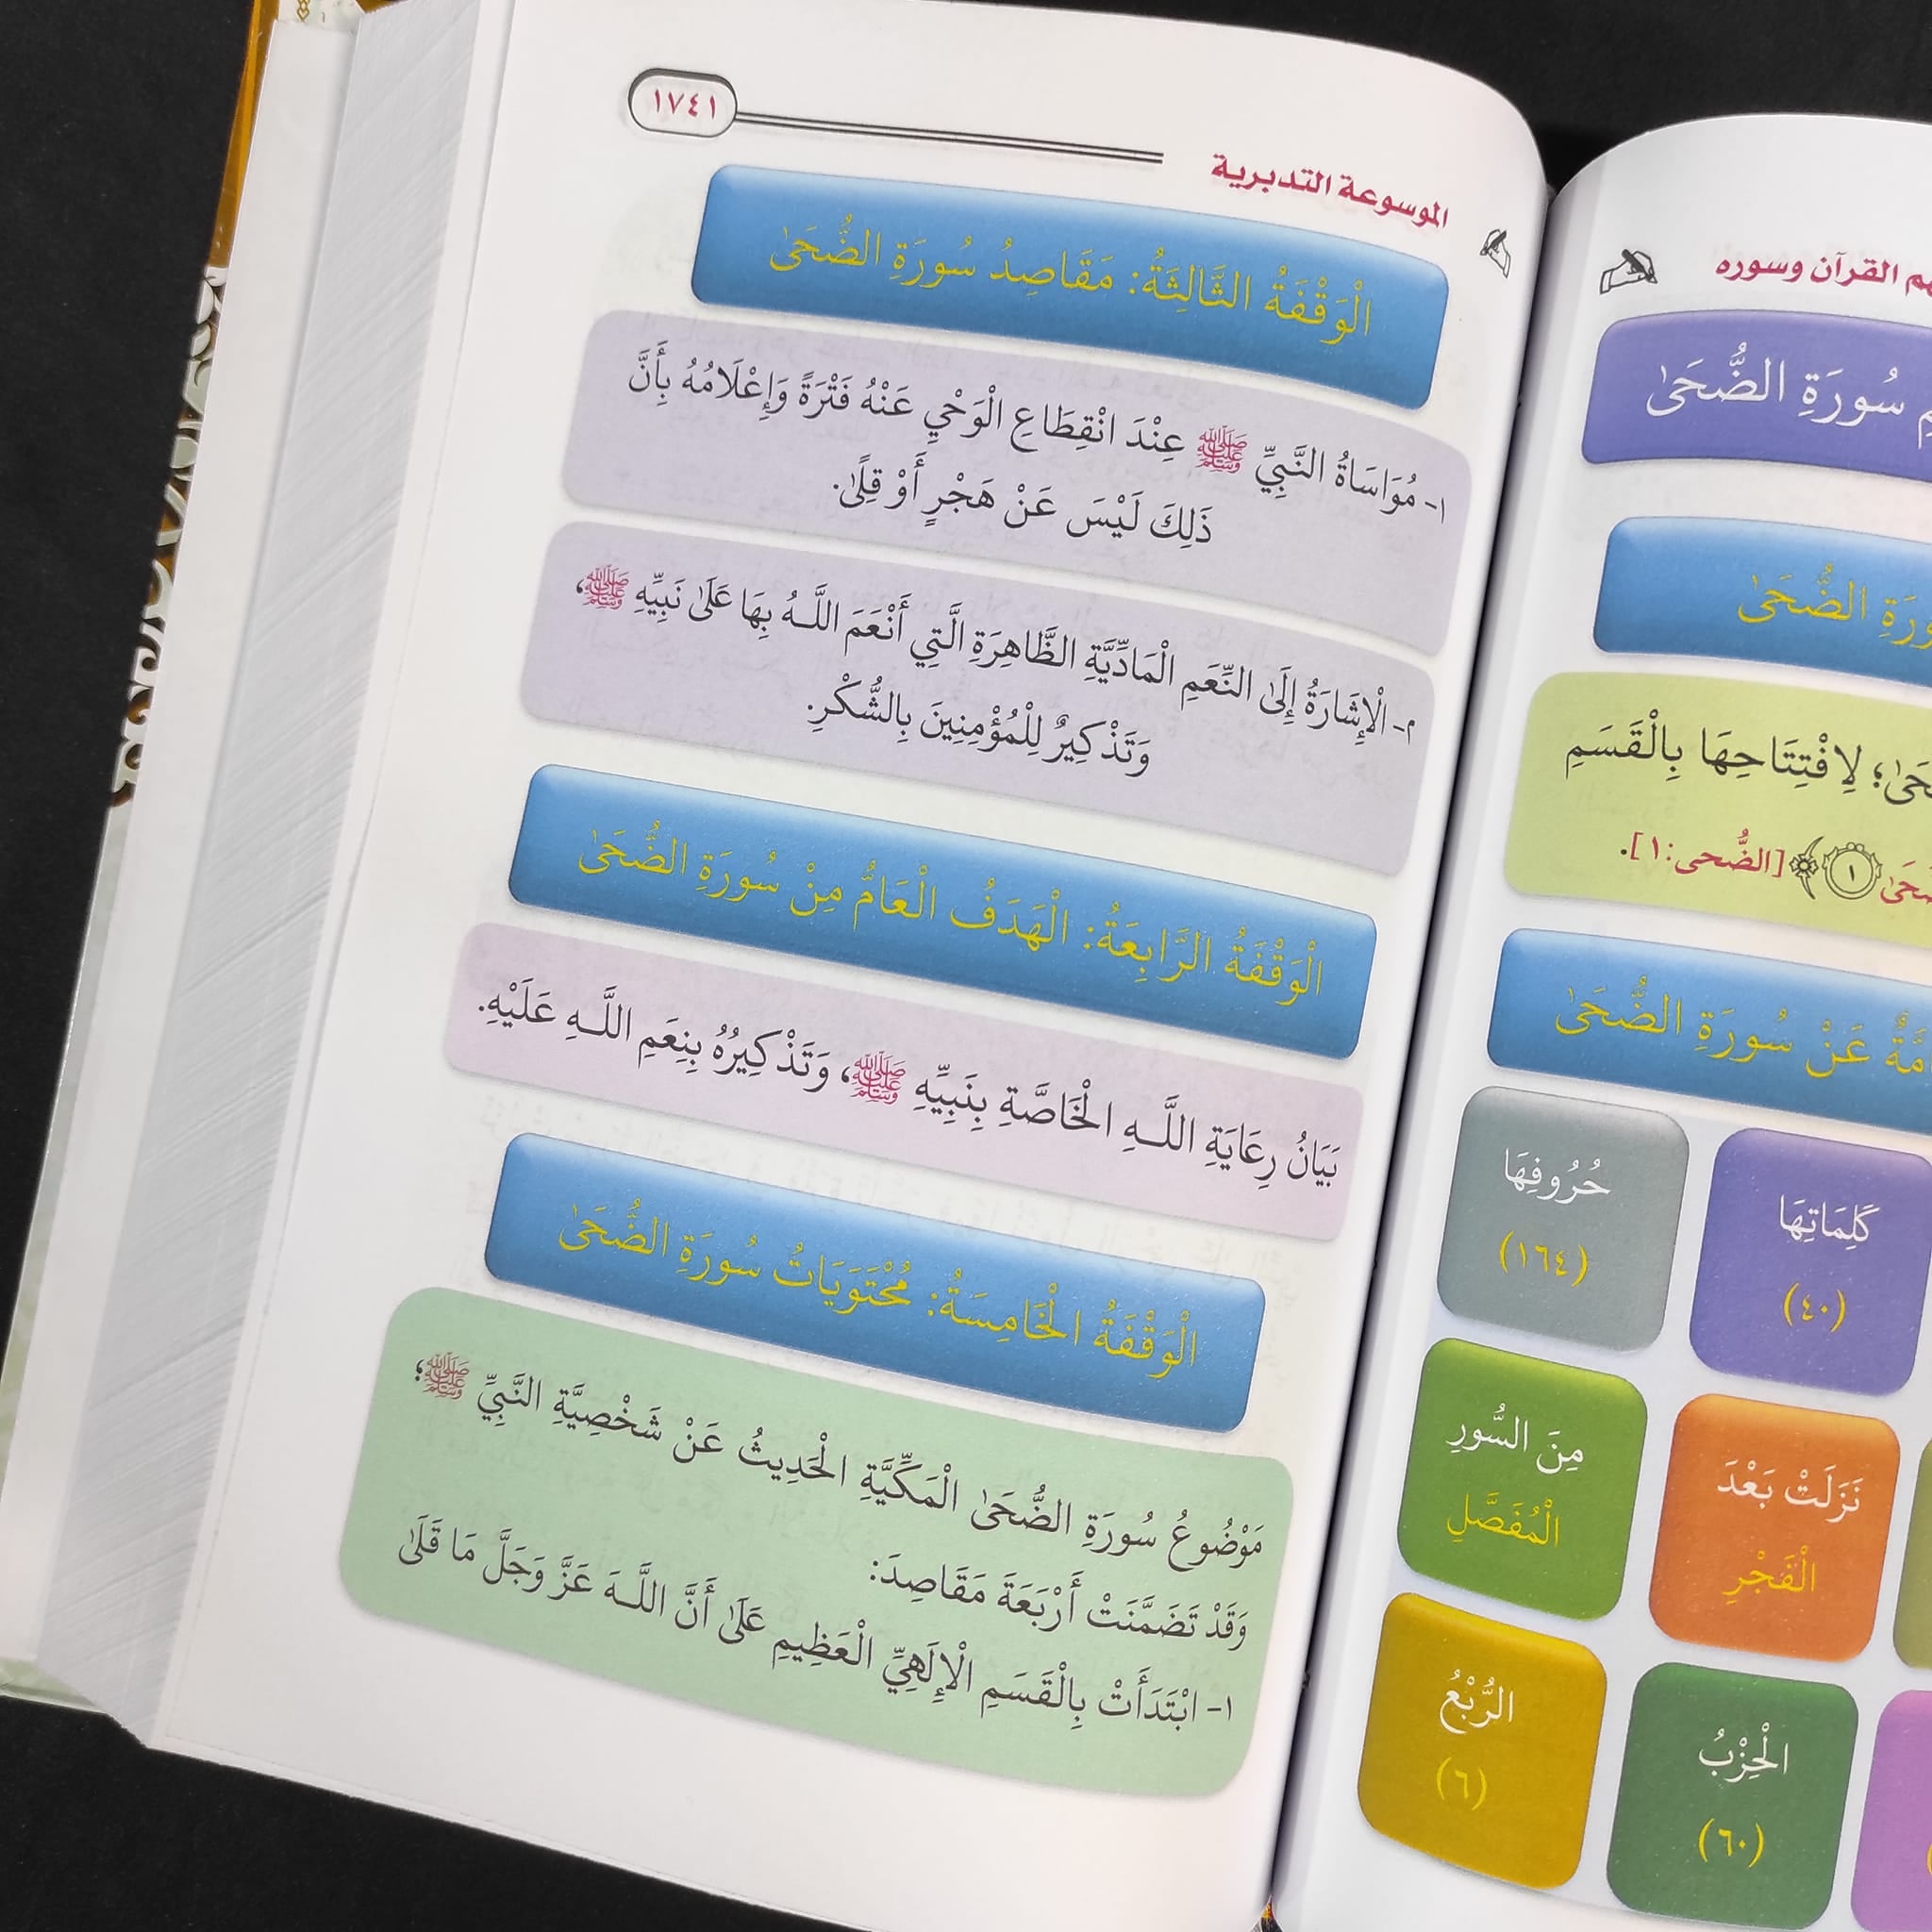 هم القرآن وسوره
سُورَةِ الضُّحَىٰ
الضُّحَىٰ
لِافْتِتَاحِهَا بِالْقَسَمِ
﴿١﴾ [الضُّحى:١].
عَنْ سُورَةِ الضُّحَىٰ
كَلِمَاتِهَا
(٤٠)
حُرُوفِهَا
(١٦٤)
نَزَلَتْ بَعْدَ
الْفَجْرِ
مِنَ السُّورِ
الْمُفَصَّلِ
الْحِزْبُ
(٦٠)
الرُّبْعُ
(٦)
الموسوعة التدبرية
١٧٤١
الْوَقْفَةُ الثَّالِثَةُ: مَقَاصِدُ سُورَةِ الضُّحَىٰ
١- مُوَاسَاةُ النَّبِيِّ ﷺ عِنْدَ انْقِطَاعِ الْوَحْيِ عَنْهُ فَتْرَةً وَإِعْلَامُهُ بِأَنَّ
ذَلِكَ لَيْسَ عَنْ هَجْرٍ أَوْ قِلًىٰ.
٢- الْإِشَارَةُ إِلَىٰ النِّعَمِ الْمَادِّيَّةِ الظَّاهِرَةِ الَّتِي أَنْعَمَ اللَّـهُ بِهَا عَلَىٰ نَبِيِّهِ ﷺ،
وَتَذْكِيرٌ لِلْمُؤْمِنِينَ بِالشُّكْرِ.
الْوَقْفَةُ الرَّابِعَةُ: الْهَدَفُ الْعَامُّ مِنْ سُورَةِ الضُّحَىٰ
بَيَانُ رِعَايَةِ اللَّـهِ الْخَاصَّةِ بِنَبِيِّهِ ﷺ، وَتَذْكِيرُهُ بِنِعَمِ اللَّـهِ عَلَيْهِ.
الْوَقْفَةُ الْخَامِسَةُ: مُحْتَوَيَاتُ سُورَةِ الضُّحَىٰ
مَوْضُوعُ سُورَةِ الضُّحَىٰ الْمَكِّيَّةِ الْحَدِيثُ عَنْ شَخْصِيَّةِ النَّبِيِّ ﷺ؛
وَقَدْ تَضَمَّنَتْ أَرْبَعَةَ مَقَاصِدَ:
١- ابْتَدَأَتْ بِالْقَسَمِ الْإِلَهِيِّ الْعَظِيمِ عَلَىٰ أَنَّ اللَّـهَ عَزَّ وَجَلَّ مَا قَلَىٰ